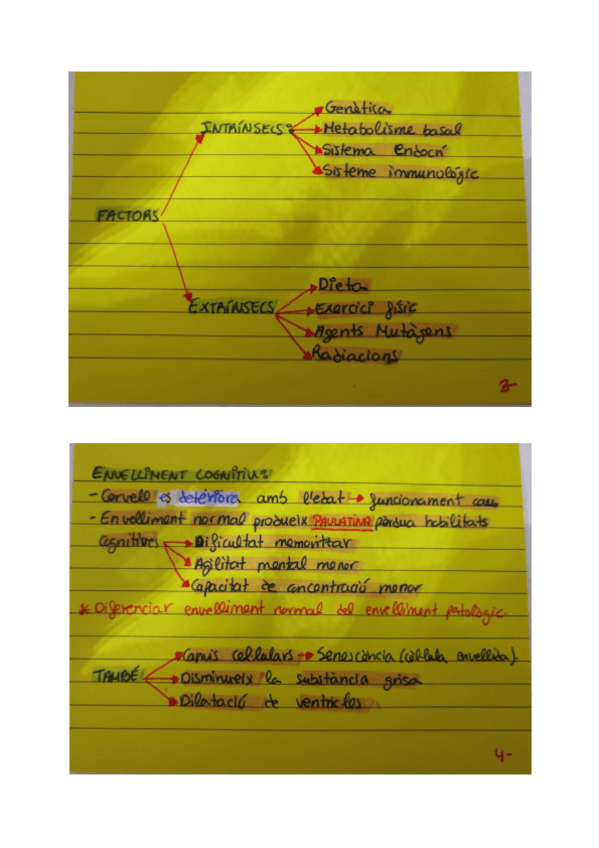 INTRÍNSECS:
Genètica
Metabolisme basal
Sistema Endocrí
Sisteme immunològic
FACTORS
EXTRÍNSECS
Dieta
Exercici físic
Agents Mutàgens
Radiacions
3-
ENVELLIMENT COGNITIU:
- Cervell es deteriora amb l'edat → funcionament
- Envelliment normal produeix PAULATINA pèrdua habilitats
cognitives → Dificultat memoritzar
Agilitat mental menor
Capacitat de concentració menor
* Diferenciar envelliment normal del envelliment patològic.
Canvis cel·lulars → Senescència (cèl·lula envellida)
TAMBÉ: Disminueix la substància grisa
Dilatació de ventricles
4-